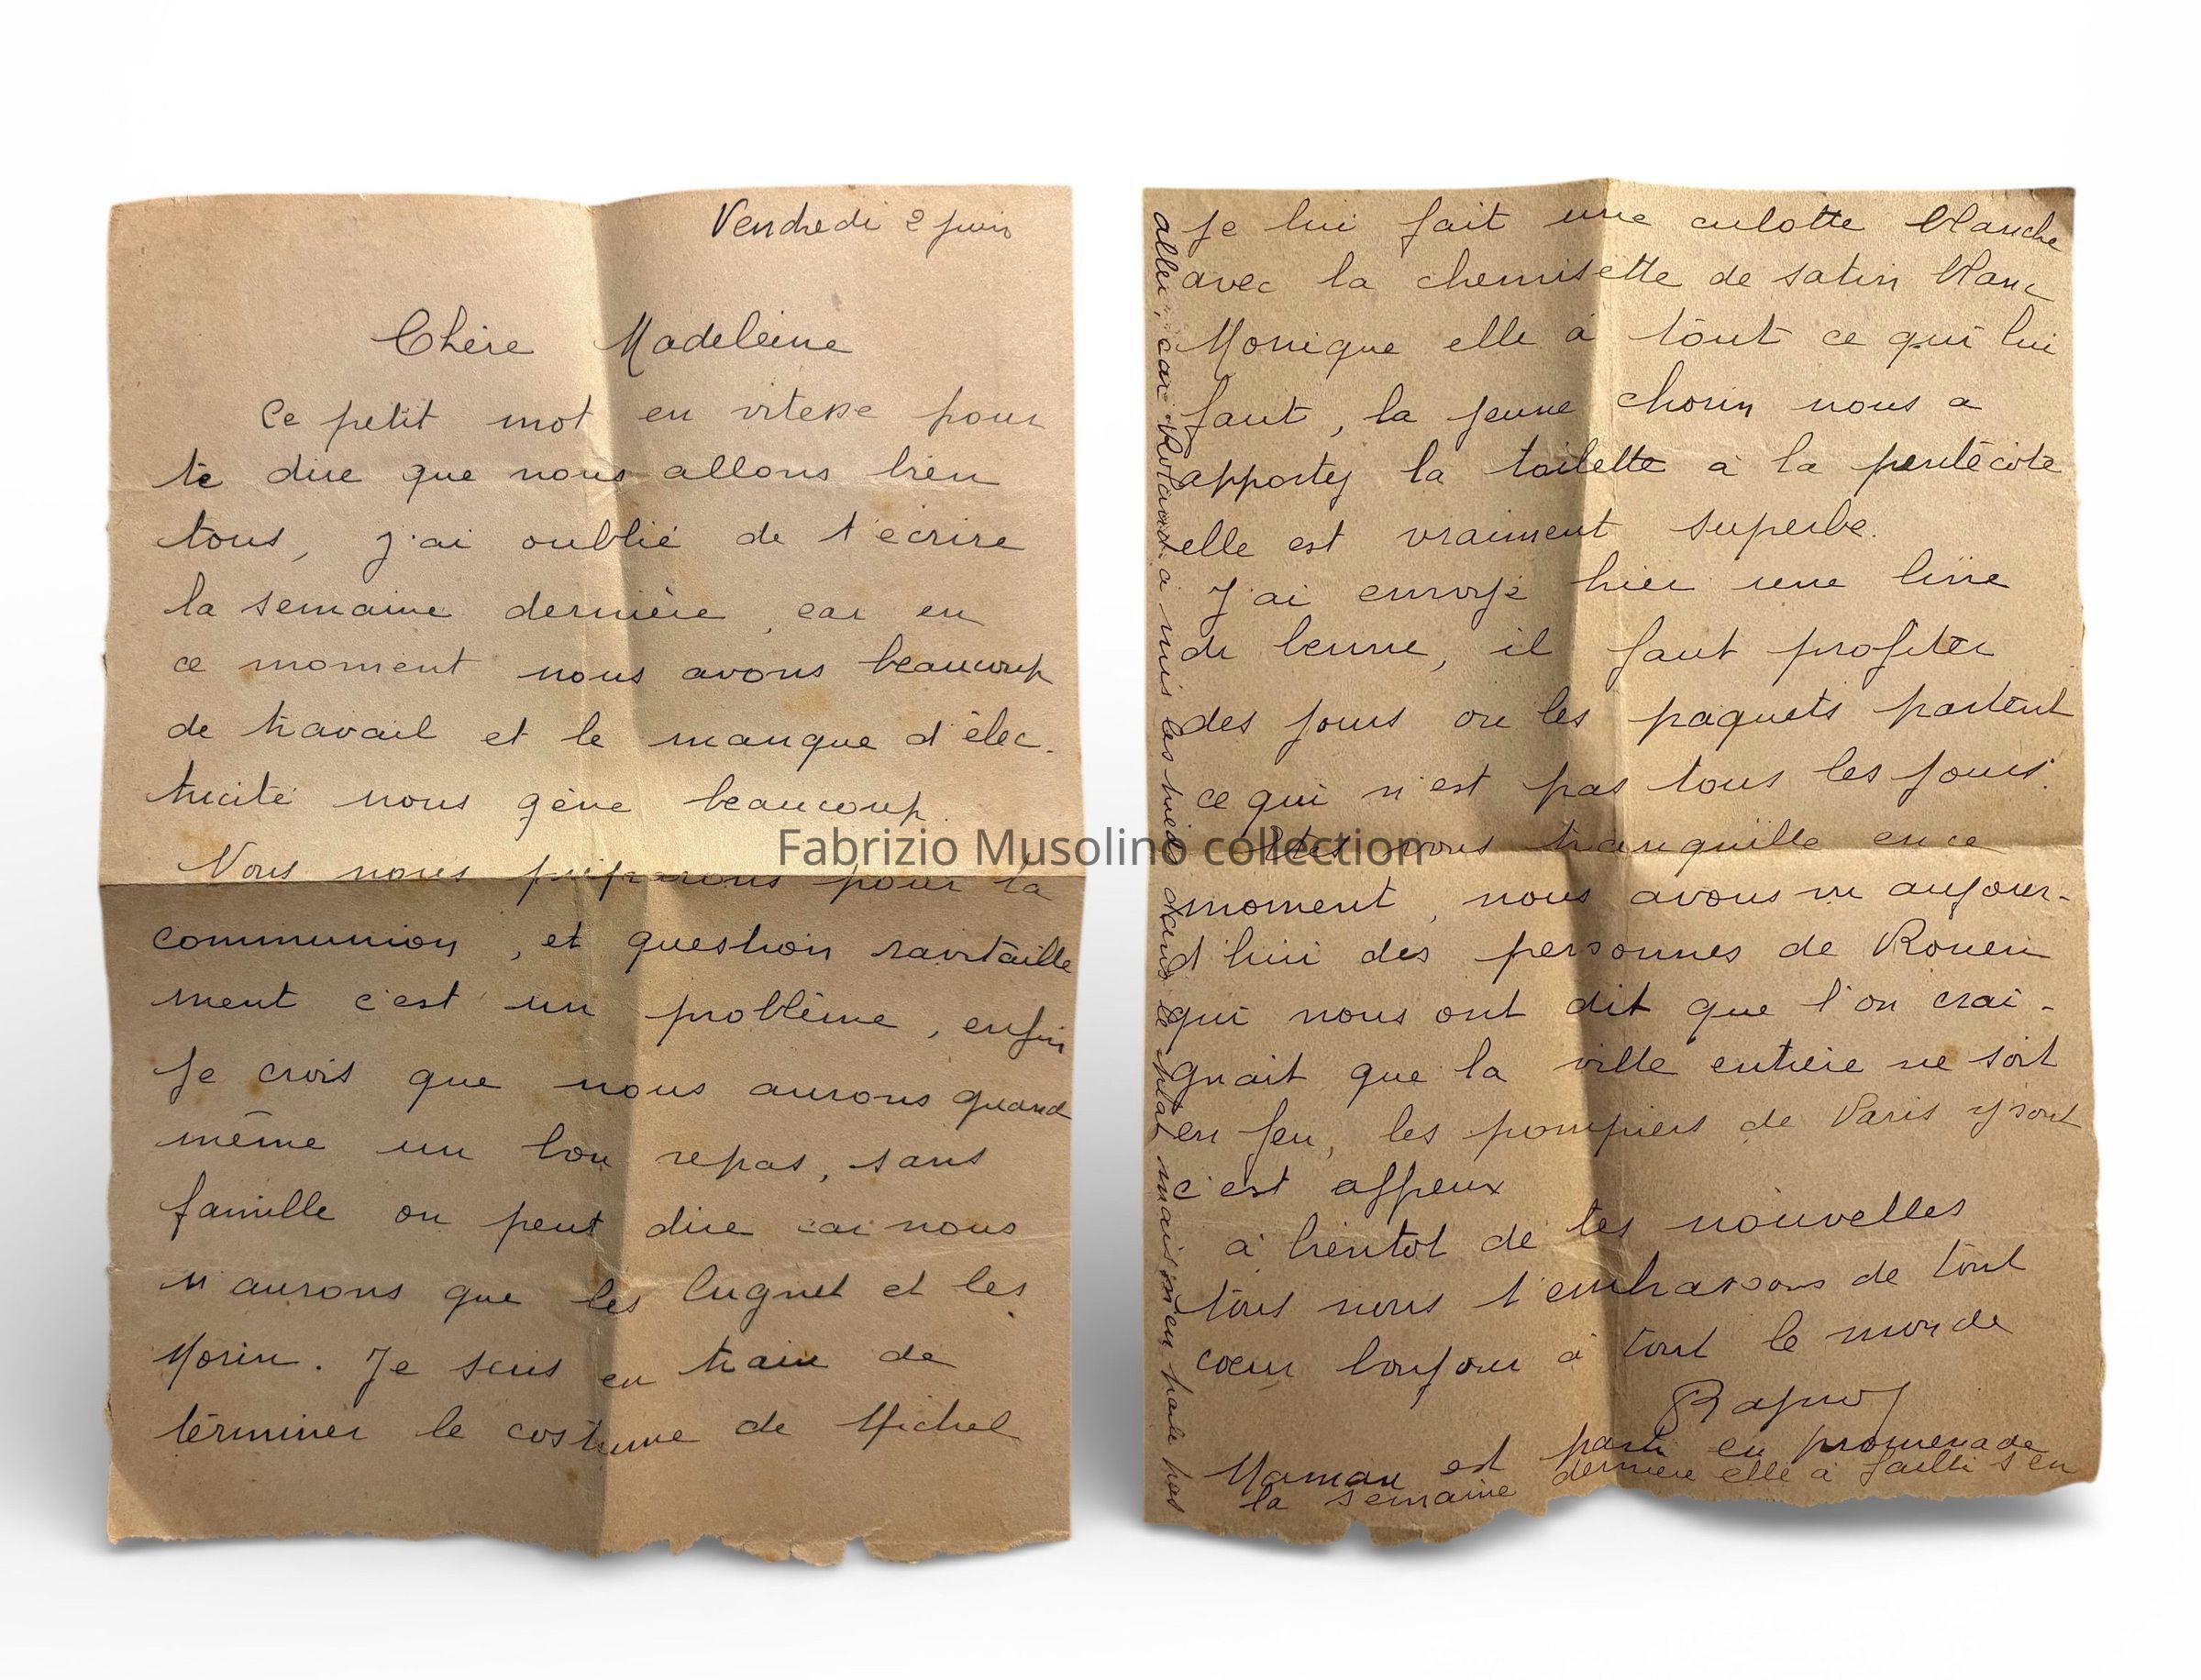 Vendredi 2 juin
Chère Madeleine
Ce petit mot en vitesse pour
te dire que nous allons bien
tous, j'ai oublié de t'écrire
la semaine dernière, car en
ce moment nous avons beaucoup
de travail et le manque d'élec-
tricité nous gène beaucoup.
Nous nous préparons pour la
communion, et question ravitaille
ment c'est un problème, enfin
je crois que nous aurons quand
même un bon repas, sans
famille on peut dire car nous
n'aurons que les Cugnet et les
Morin. Je suis en train de
terminer le costume de Michel
je lui fait une culotte blanche
avec la chemisette de satin blanc
Monique elle à tout ce qui lui
faut, la jeune chorin nous a
apportez la toilette à la pentecôte
elle est vraiment superbe.
J'ai envoyé hier une livre
de beurre, il faut profiter
des jours ou les paquets partent
ce qui n'est pas tous les jours.
Etes vous tranquille en ce
moment, nous avons vu aujour-
d'hui des personnes de Rouen
qui nous ont dit que l'on crai-
gnait que la ville entière ne soit
en feu, les pompiers de Paris y sont
c'est affreux
à bientot de tes nouvelles
tous nous t'embrassons de tout
coeur bonjour à tout le monde
Maman est parti en promenade
la semaine dernière elle à failli s'en
aller, car Roland a mis les pieds dans le plat mais n'en parle pas
Fabrizio Musolino collection